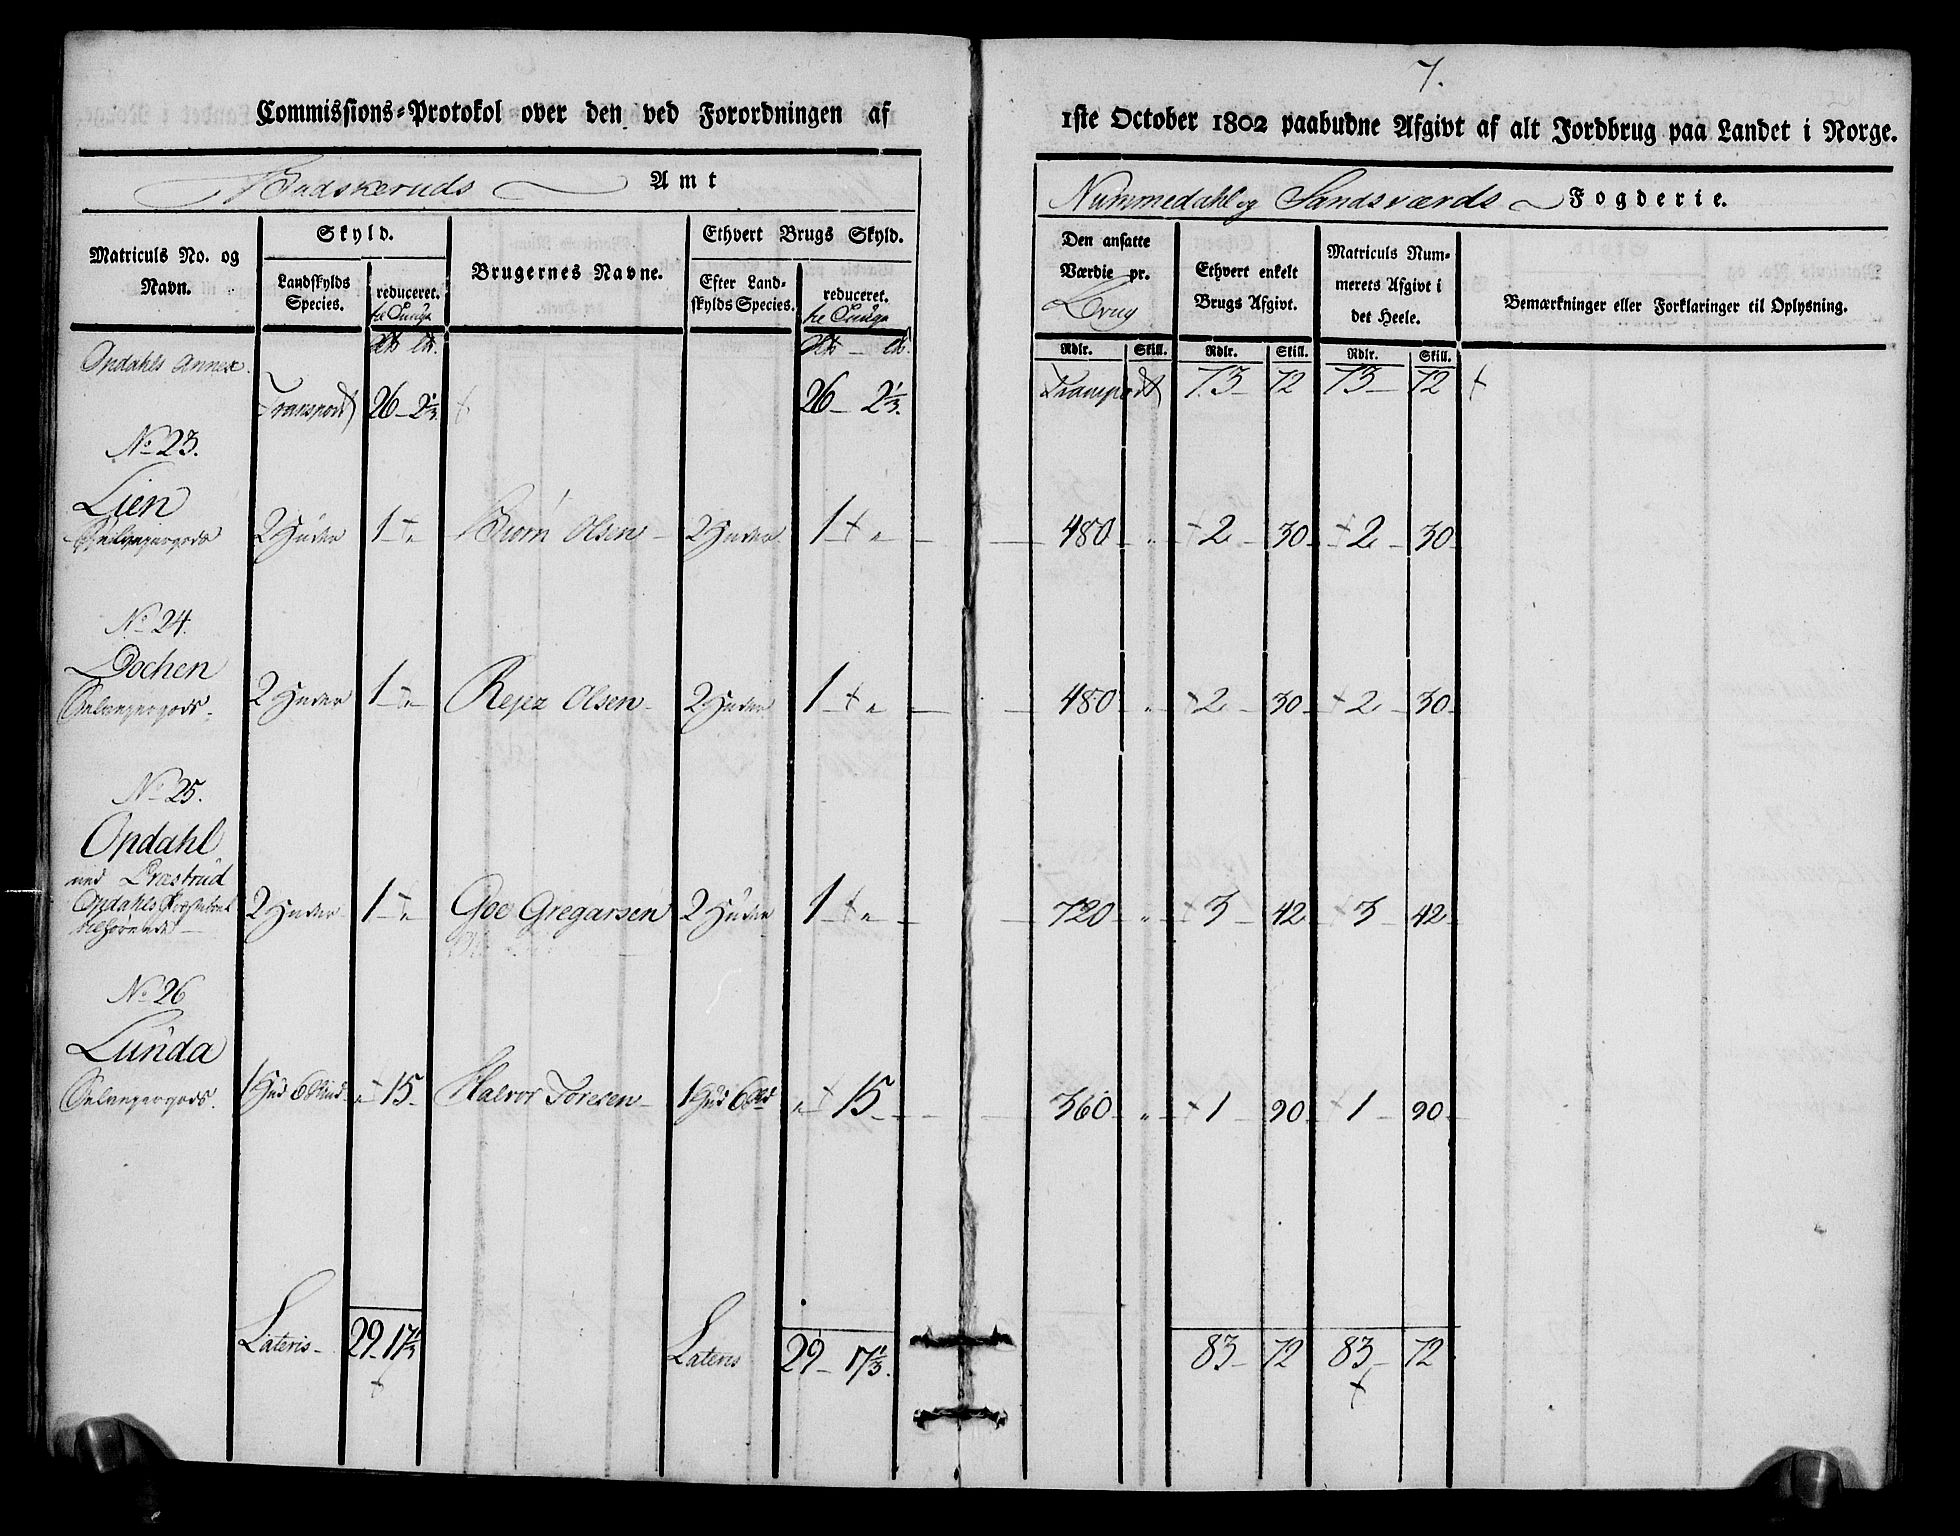 7.
Commissions-Protokol over den ved Forordningen af
1ste October 1802 paabudne Afgivt af alt Jordbrug paa Landet i Norge.
Buskeruds Amt
Nummedahl og Sandsværds Fogderie.
Matriculs No. og Navn.
Skyld.
Landskylds Species.
reduceret.
Brugernes Navne.
Ethvert Brugs Skyld.
Efter Landskylds Species.
reduceret.
Den ansatte Værdie pr. Brug
Ethvert enkelt Brugs Afgivt.
Matriculs Nummerets Afgivt i det Heele.
Bemærkninger eller Forklaringer til Oplysning.
Rdlr. Skill. Rdlr. Skill. Rdlr. Skill.
Opdahls Annex.
Transport 26 - 2 1/3. 26 - 2 1/3. Transport 73 72 73 - 72
No 23.
Lien
2 Huder 1 Biørn Olsen 2 Huder 1 480 2 30 2 30
No 24.
Dochen
Selveyergods 2 Huder 1 Olsen 2 Huder 1 480 2 30 2 30
No 25.
Opdahl
med Præstrud
Opdahls
2 Huder 1 Goe Gregarsen 2 Huder 1 720 3 42 3 42
No 26
Lunda
Selveyergods. 1 Hud 6 Skind 15 Halvor Toresen 1 Hud 6 Skd 15 360 1 90 1 90
Lateris 29 - 17 1/3 Lateris 29 - 17 1/3. 83 - 72 83 - 72